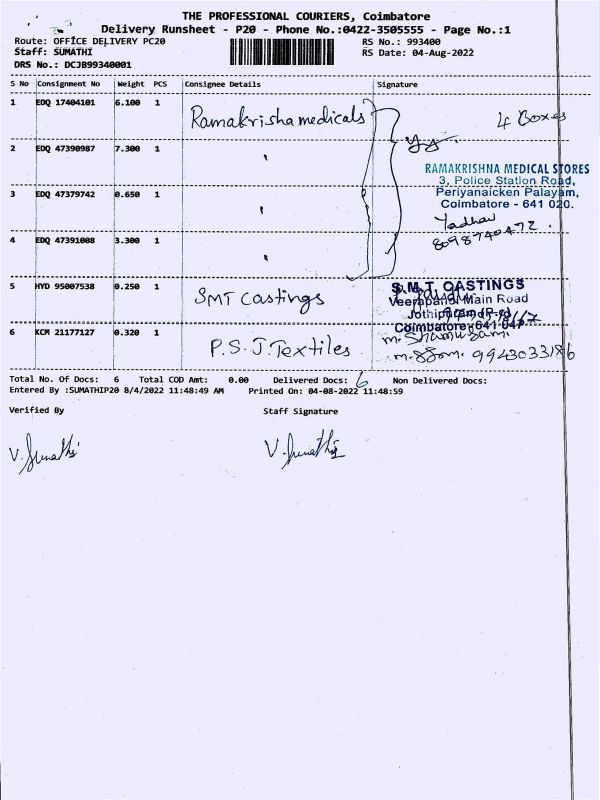 THE PROFESSIONAL COURIERS, Coimbatore
Delivery Runsheet - P20 - Phone No.:0422-3505555 - Page No.:1
Route: OFFICE DELIVERY PC20 RS No.: 993400
Staff: SUMATHI RS Date: 04-Aug-2022
DRS No.: DCJB99340001
S No Consignment No Weight PCS Consignee Details Signature
1 EDQ 17404101 6.100 1 Ramakrisha medicals 4 Boxes
2 EDQ 47390987 7.300 1 "
RAMAKRISHNA MEDICAL STORES
3, Police Station Road,
3 EDQ 47379742 0.650 1 " Periyanaicken Palayam,
Coimbatore - 641 020.
Yadhav
4 EDQ 47391008 3.300 1 " 8098740472.
5 HYD 95007538 0.250 1 SMT Castings S.M.T. CASTINGS
Veerapandi Main Road
Jothipuram (P.O)
Coimbatore - 641 047
6 KCM 21177127 0.320 1 P.S.J. Textiles
9943033186
Total No. Of Docs: 6 Total COD Amt: 0.00 Delivered Docs: 6 Non Delivered Docs:
Entered By :SUMATHIP20 8/4/2022 11:48:49 AM Printed On: 04-08-2022 11:48:59
Verified By Staff Signature
V. Sumathi V. Sumathi